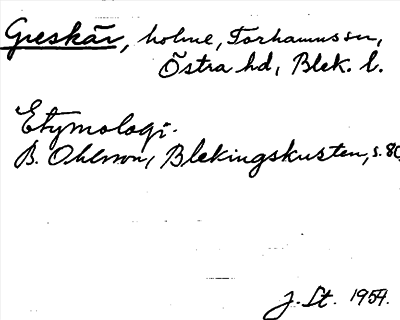 Greskär, holme, Torhamns sn,
Östra hd, Blek. l.
Etymologi.
B. Ohlsson, Blekingskusten, s. 80
J. St. 1954.